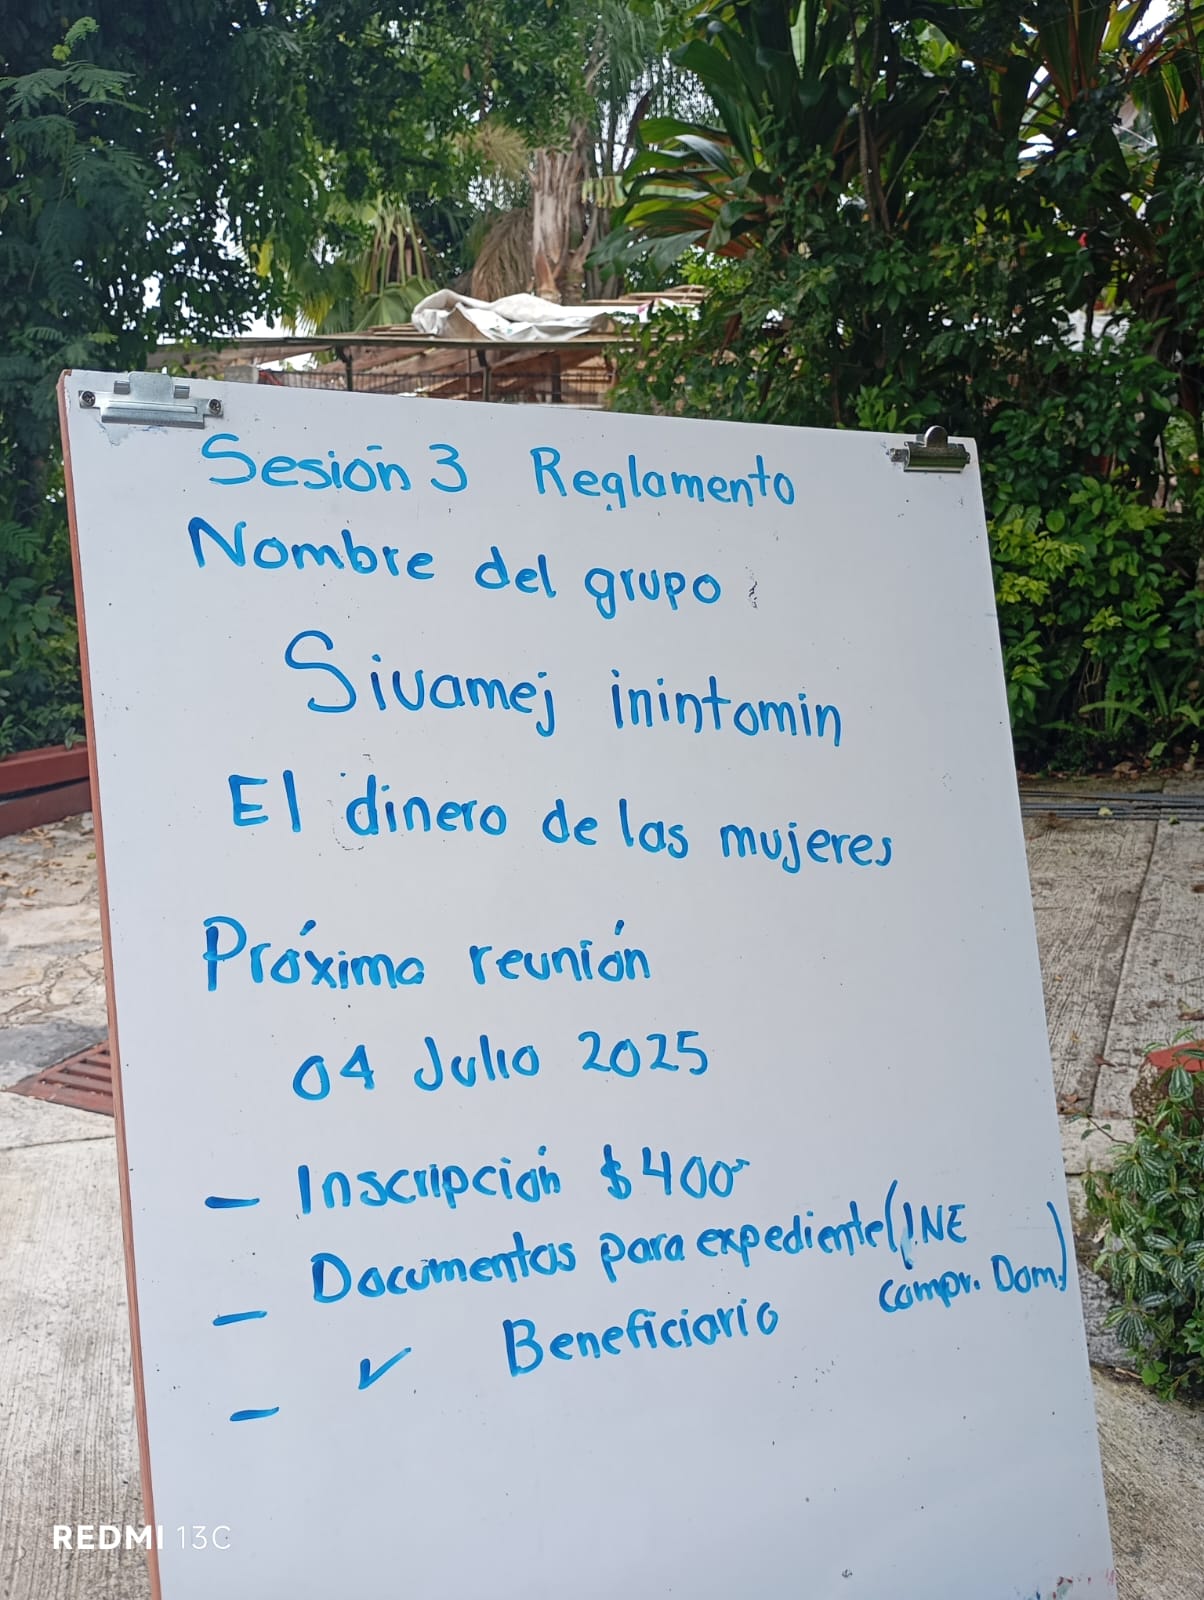 Sesión 3 Reglamento
Nombre del grupo
Sivamej inintomin
El dinero de las mujeres
Próxima reunión
04 Julio 2025
- Inscripción $400
- Documentos para expediente (INE
compr. Dom.)
✓ Beneficiario
-
REDMI 13C